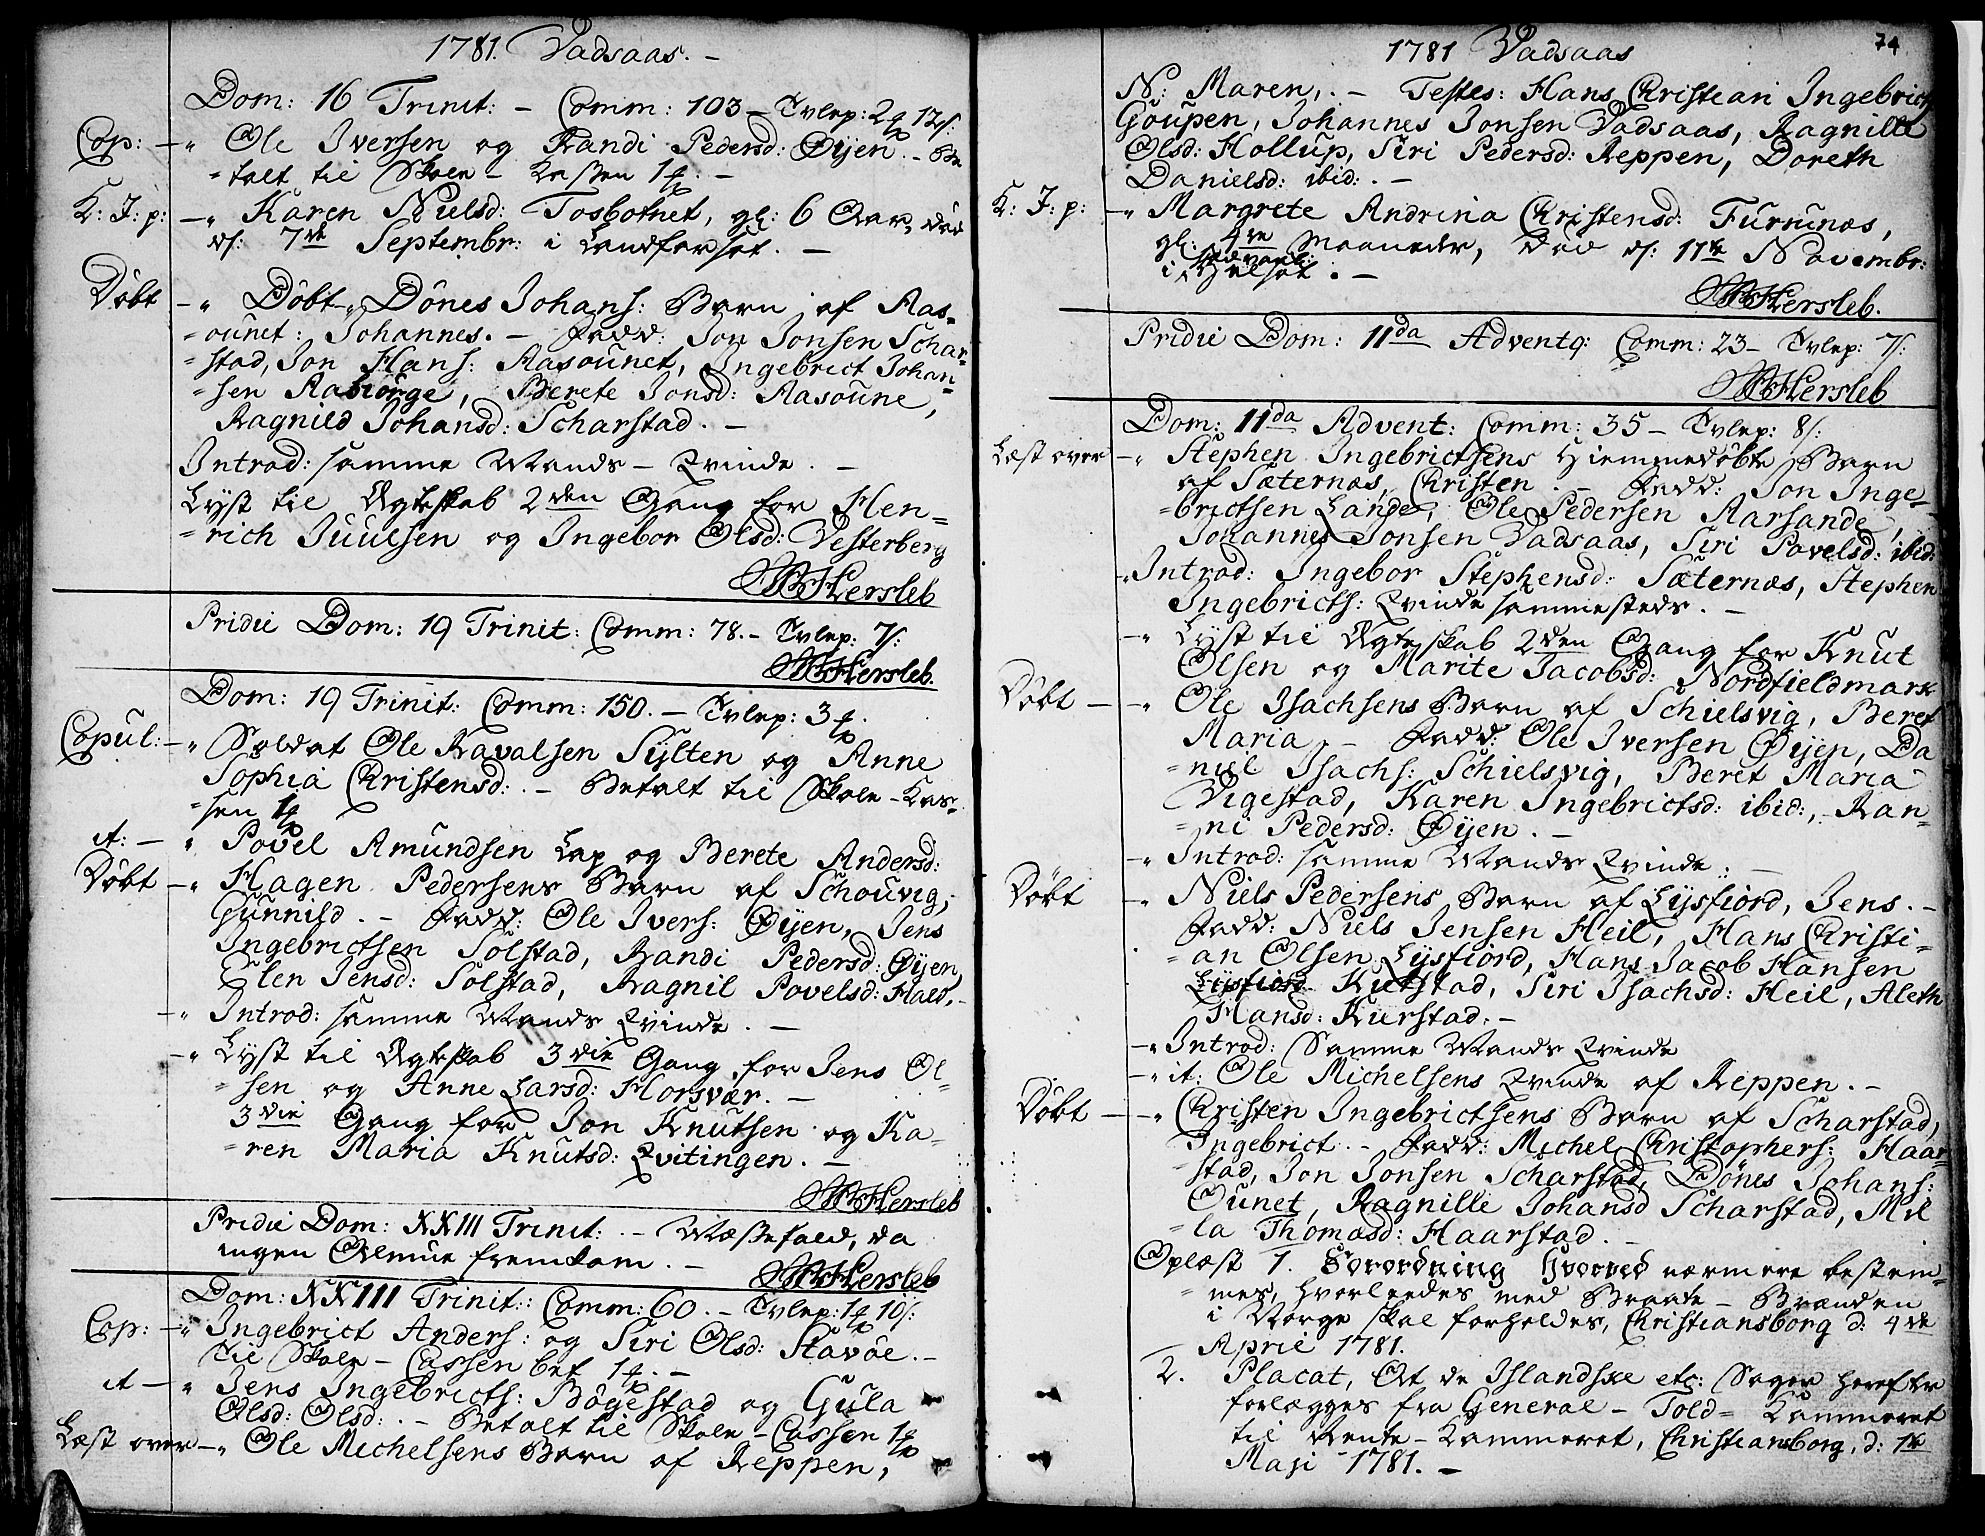 1781. Vadsaas. –
Dom: 16 Trinit: – Comm: 103 – Tvlep: 2 12 s:
Cop: – " Ole Iversen og Randi Pedersd: Øijen. – Be
=talt til Skole – Cassen 1
K: J: p: – " Karen Nielsd: Tosbotnet, gl: 6 Aar, død
d: 7de Septembr: i Landfarsot. –
Døbt – " Døbt – Dônes Johans: Barn af Aas-
=ounet: Johannes. – Fadd: Jon Jonsen Schar-
=stad, Jon Hans: Aasounet, Ingebrict Johan-
=sen Aabiørge, Berete Jonsd: Aasoune,
Ragnild Johansd: Scharstad. –
Introd: samme Mands – Qvinde. –
Lyst til Ægteskab 2den Gang for Hen=
=rich Juulsen og Ingebor Olsd: Vesterberg
Hersleb
Pridie Dom: 19 Trinit: Comm: 78. – Tvlep: 7 s:
Hersleb.
Dom: 19 Trinit: Comm: 150. – Tvlep: 3
Copul: – " Soldat Ole Ravalsen Sylten og Anne
Sophia Christensd: . – Betalt til Skole – Cas-
=sen 1
it: – " Povel Amundsen Lap og Berete Andersd:
Døbt – " Hagen Pedersens Barn af Schouvig,
Gunnild. – Fadd: Ole Ivers: Øijen, Jens
Ingebrictsen Solstad, Randi Pedersd: Øijen,
Elen Jensd: Solstad, Ragnil Povelsd: Hald. –
– " Introd: samme Mands Qvinde. –
– " Lyst til Ægteskab 3die Gang for Jens Ol-
=sen og Anne Larsd: Horsvær. –
3die Gang for Jon Knutsen og Ka-
=ren Maria Knutsd: Qvitingen. –
Hersleb
Pridie Dom: XXIII Trinit: . – Messefald, da
ingen Almue fremkom. –
Hersleb
Dom: XXIII Trinit: : Comm: 60. – Tvlep: 1 10 s:
Cop: – " Ingebrict Anders: og Siri Olsd: Stavøe. –
til Skole – Cassen bet 1 . –
it – " Jens Ingebricts: Bôgestad og Gula
Olsd: Olsd: . – Betalt til Skole – Cassen 1
Læst over – " Ole Michelsens Barn af Reppen,
74
1781 Vadsaas
N: Maren, . – Testes: Hans Christian Ingebricts
Goupen, Johannes Jonsen Vadsaas, Ragnille
Olsd: Hollup, Siri Pedersd: Reppen, Doreth
Danielsd: ibid: . –
K: J: p: – " Margrete Andrina Christensd: Furunæs,
gl: 4re Maaneder, død d: 11te Novembr:
i Helsot. –
Hersleb.
Pridie Dom: 11da Adventq: Comm: 23 – Tvlep: 7 s:
Hersleb
Dom: 11da Advent: Comm: 35 – Tvlep: 8 s:
Læst over – " Stephen Ingebrictsens Hiemmedøbte Barn
af Sæternæs, Christen. – Fadd: Jon Inge-
=brictsen Lande, Ole Pedersen Aarsande,
Johannes Jonsen Vadsaas, Siri Povelsd: ibid:
– " Introd: Ingebor Stephensd: Sæternæs, Stephen
Ingebricts: Qvinde sammesteds. –
– " Lyst til Ægteskab 2den Gang for Knut
Olsen og Marite Jacobsd: Nordfieldmark
Døbt – – " Ole Isachsens Barn af Schielsvig, Beret
Maria – Fadd: Ole Iversen Øijen, Da
=niel Isachs: Schielsvig, Beret Maria
Vigestad, Karen Ingebrictsd: ibid:, Ran-
=ni Pedersd: Øijen. –
– " Introd: samme Mands Qvinde: –
Døbt – " Niels Pedersens Barn af Lysfiord, Jens. –
Fadd: Niels Jensen Heil, Hans Christi=
=an Olsen Lysfiord, Hans Jacob Hansen
Lysfiord Kurstad, Siri Isachsd: Heil, Aleth
Hansd: Kurstad. –
– " Introd: Samme Mands Qvinde
– " it: Ole Michelsens Qvinde af Reppen. –
Døbt – – " Christen Ingebrictsens Barn af Scharstad,
Ingebrict. – Fadd: Michel Christophers: Haar-
=stad, Jon Jonsen Scharstad, Dônes Johans:
Ounet, Ragnille Johansd Scharstad, Mil
=la Thomasd: Haarstad. –
Oplæst 1. Forordning Hvorved nærmere bestem=
=mes, hvorledes med Braate – Branden
i Norge skal forholdes, Christiansborg d: 4de
April 1781.
2. Placat, At de Islandske etc: Sager herefter
forlægges fra General – Told = Kammeret
til Rente – Kammeret, Christiansborg, d: 1te
Maji 1781. –